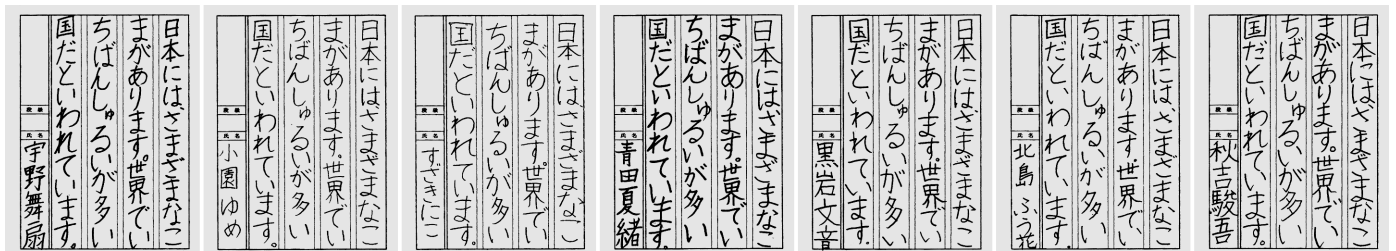 日本にはさまざまなこ
まがあります。世界でい
ちばんしゅるいが多い
国だといわれています。
段級
氏名
宇野舞扇
日本にはさまざまなこ
まがあります。世界でい
ちばんしゅるいが多い
国だといわれています。
段級
氏名
小園ゆめ
日本にはさまざまなこ
まがあります。世界でい
ちばんしゅるいが多い
国だといわれています。
段級
氏名
すざきにこ
日本にはさまざまなこ
まがあります。世界でい
ちばんしゅるいが多い
国だといわれています。
段級
氏名
青田夏緒
日本にはさまざまなこ
まがあります。世界でい
ちばんしゅるいが多い
国だといわれています。
段級
氏名
黒岩文音
日本にはさまざまなこ
まがあります。世界で、い
ちばんしゅるいが多い
国だといわれています。
段級
氏名
北島ふう花
日本にはさまざまなこ
まがあります。世界でい
ちばんしゅるいが多い
国だといわれています。
段級
氏名
秋吉駿吾